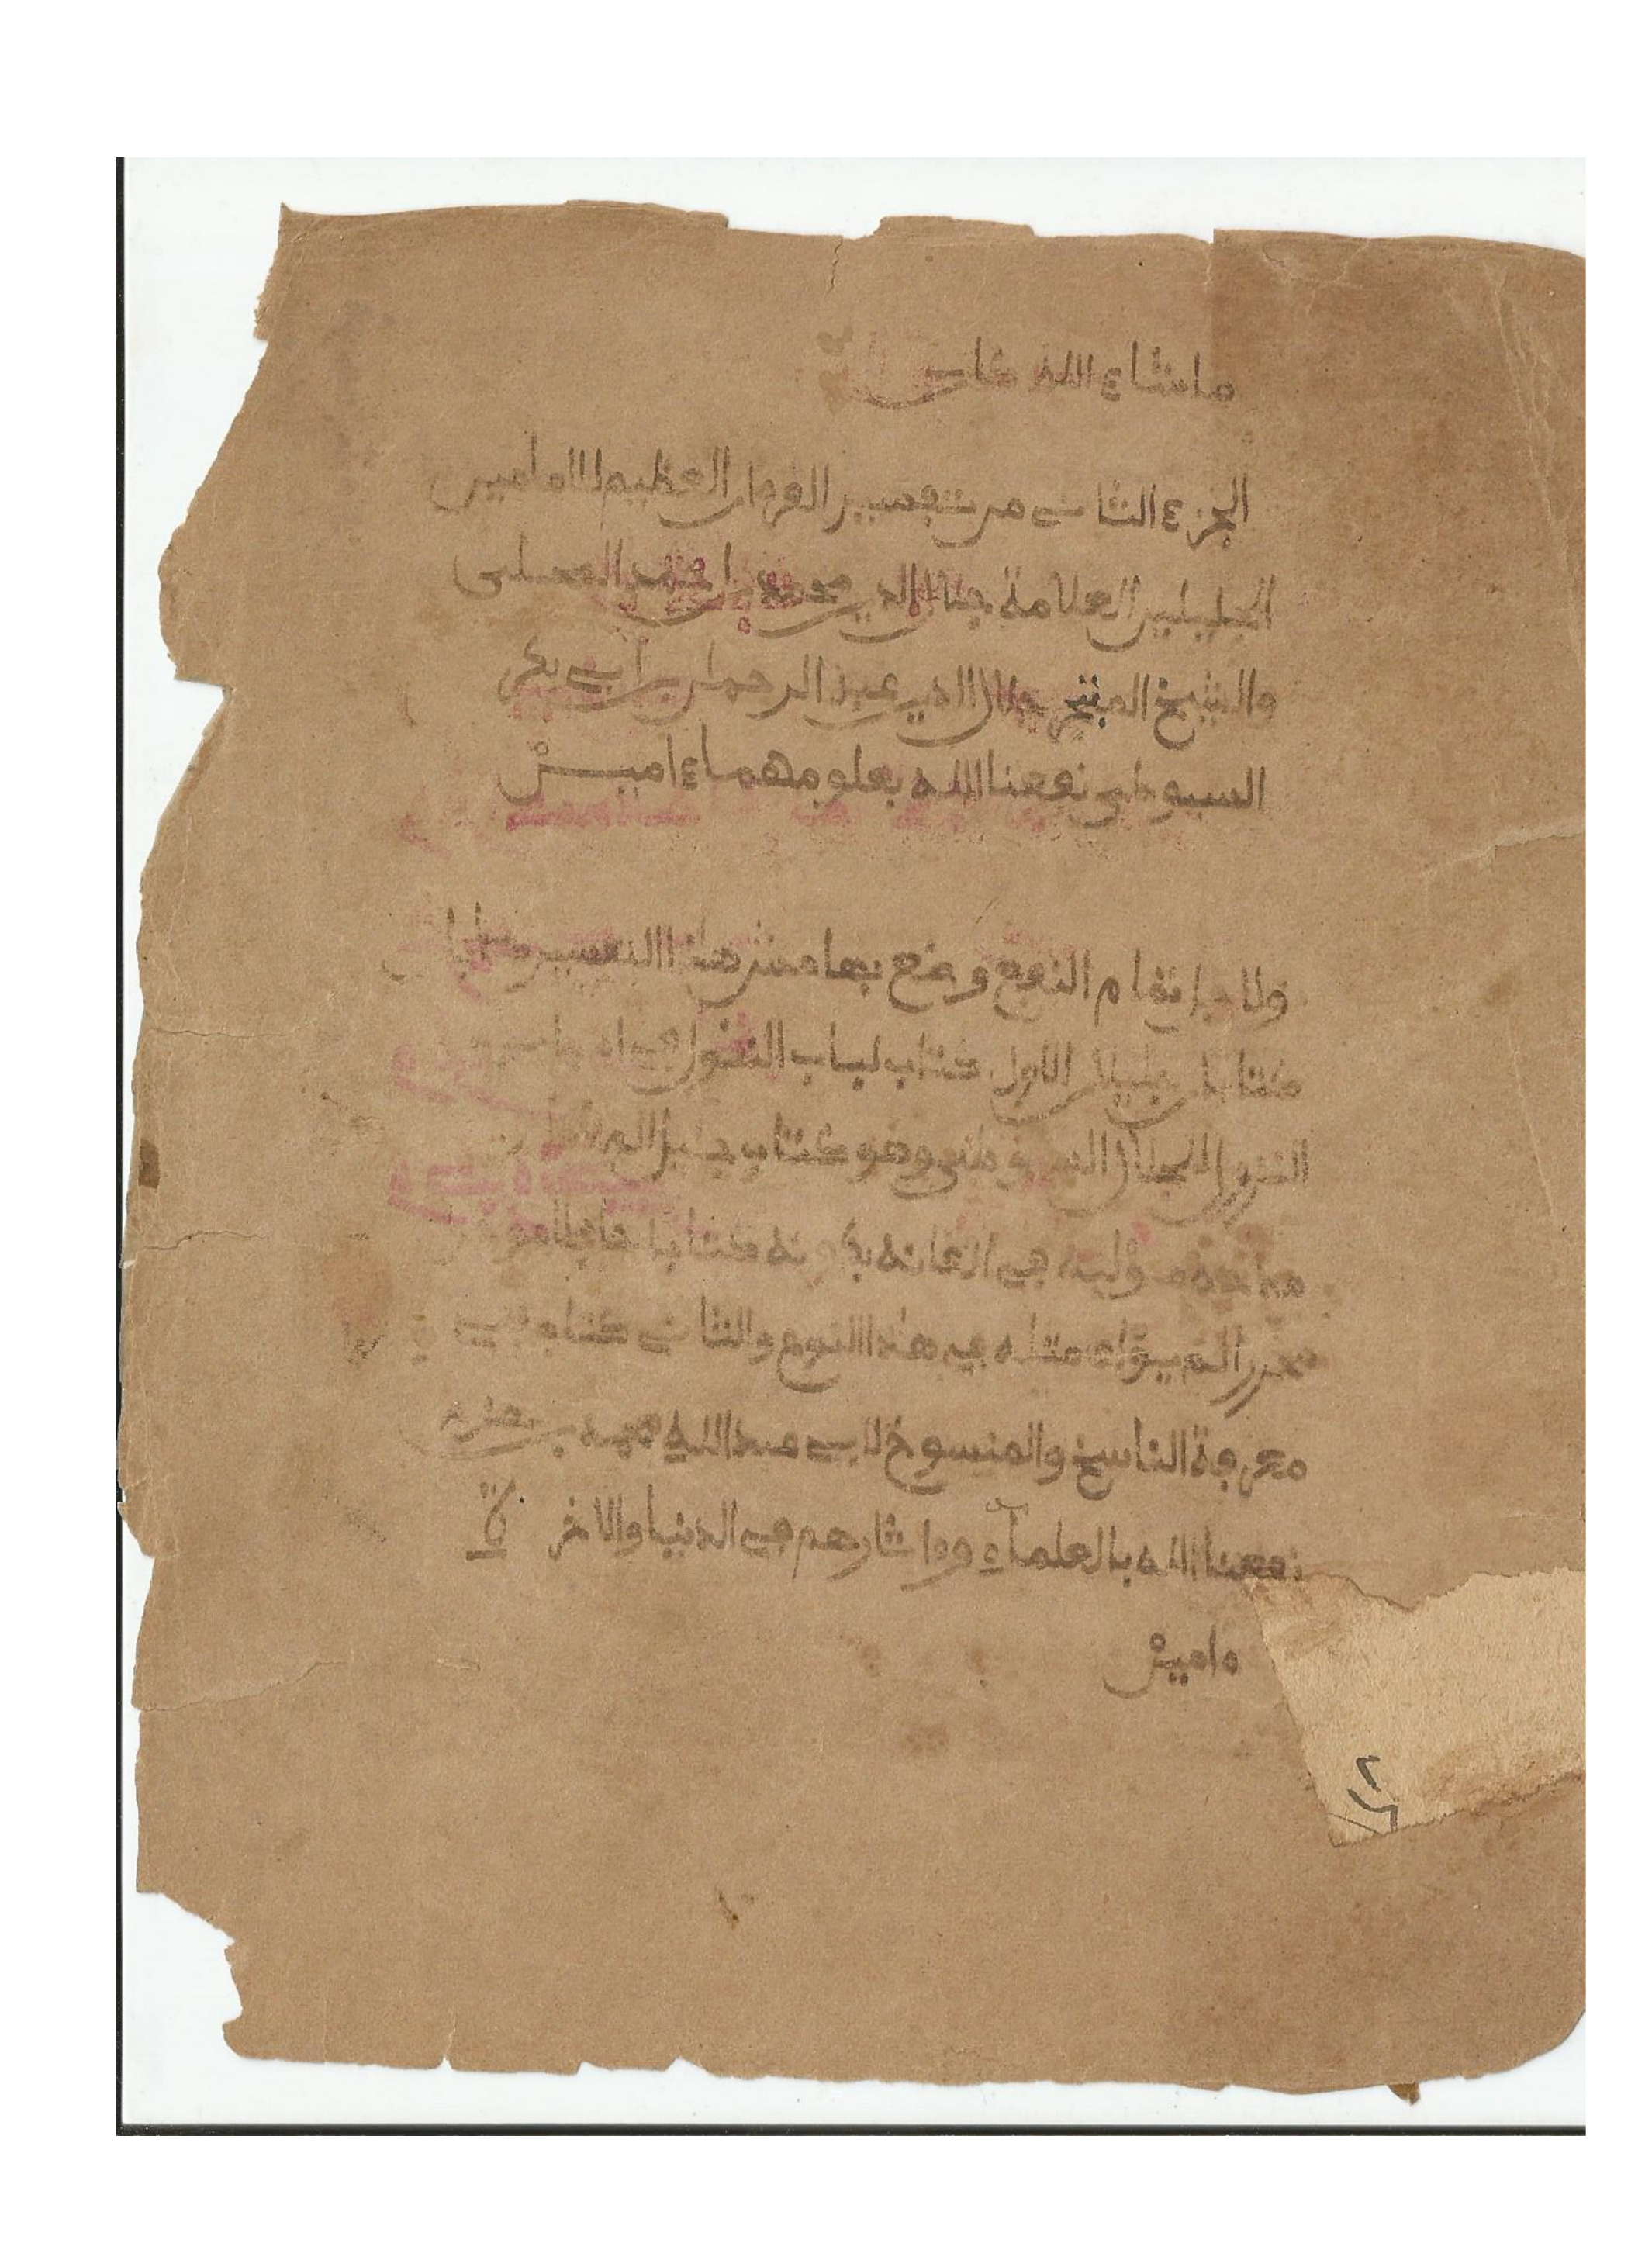 ما شاء الله كان
الجزء الثاني من تفسير القرءان العظيم للامامين
الجليلين العلامة جلال الدين محمد بن احمد المحلى
والشيخ المتبحر جلال الدين عبد الرحمان بن أبي بكر
السيوطي نفعنا الله بعلومهما ءامين
ولاجل تمام النفع وضع بهامش هذا التفسير
كتابان جليلان الاول كتاب لباب النقول في اسباب
النزول للجلال السيوطي وهو كتاب جليل
مؤلفه في الاتقانه بكونه كتابا حافلا
محررا لم يؤلف مثله في هاذا النوع والثاني كتاب في
معرفة الناسخ والمنسوخ لابي عبد الله محمد بن حزم
نفعنا الله بالعلماء وءاثارهم في الدنيا والاخرة
ءامين